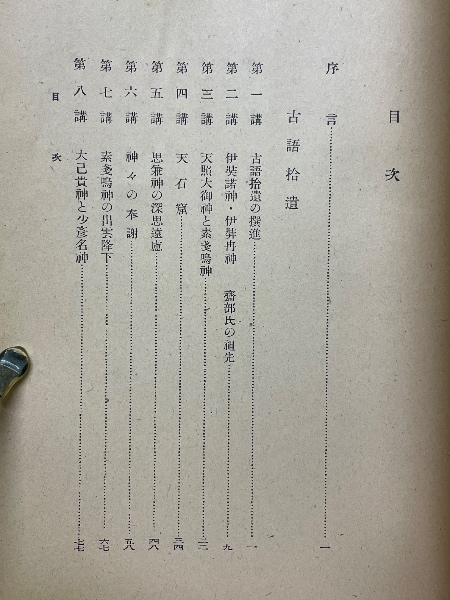 目次
序言 一
古語拾遺
第一講 古語拾遺の撰進 一
第二講 伊奘諾神・伊奘冉神 齋部氏の祖先 九
第三講 天照大御神と素戔嗚神
第四講 天石窟 三四
第五講 思兼神の深思遠慮 四八
第六講 神々の奉謝 五八
第七講 素戔嗚神の出雲降下 六七
第八講 大己貴神と少彥名神 七七
目次